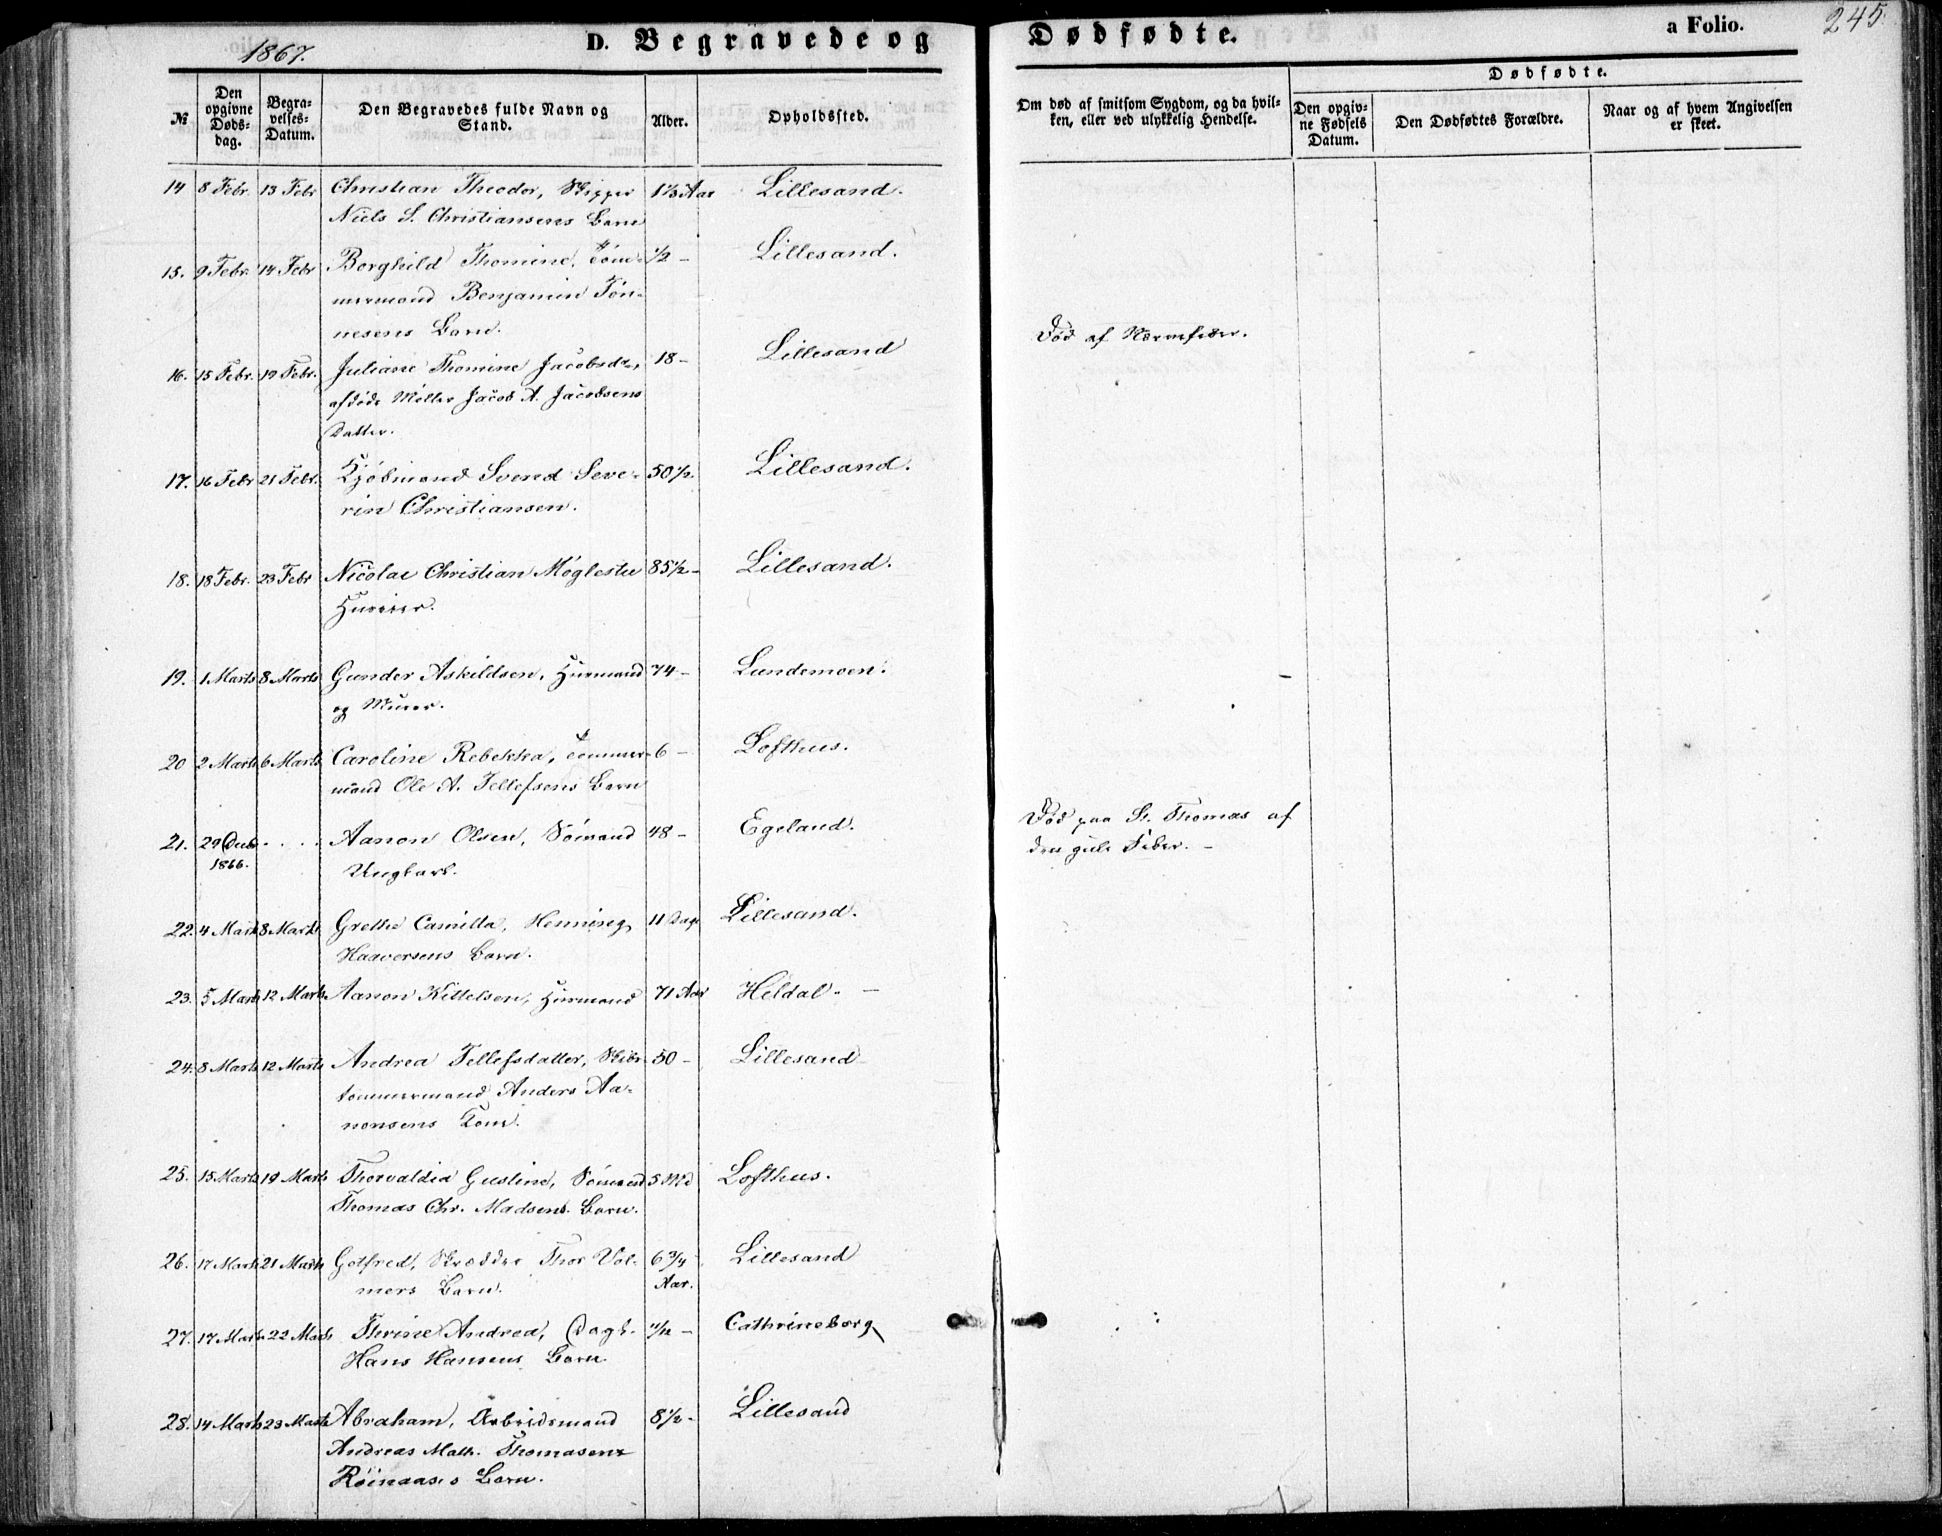 1867.
D. Begravede og Dødfødte.
a Folio.
245.
№
Den opgivne Døds-dag.
Begra-velses-Datum.
Den Begravedes fulde Navn og Stand.
Alder.
Opholdssted.
Om død af smitsom Sygdom, og da hvil-ken, eller ved ulykkelig Hendelse.
Dødfødte.
Den opgiv-ne Fødsels Datum.
Den Dødfødtes Forældre.
Naar og af hvem Angivelsen er skeet.
14 8 Febr. 13 Febr Christian Theodor, Skipper 1⅓ Aar Lillesand.
Niels S. Christiansens Barn
15. 9 Febr. 14 Febr Borghild Thomine, Tøm- ½ - Lillesand.
mermand Benjamin Tøn-
nesens Barn.
16. 15 Febr. 19 Febr. Juliane Thomine Jacobsdr, 18 - Lillesand Død af Nervefeber.
afdøde Møller Jacob A. Jacobsens
Datter.
17. 16 Febr 21 Febr. Kjøbmand Svend Seve- 50½. Lillesand.
rin Christiansen.
18. 18 Febr. 23 Febr Nicolai Christian Møglestu 85½ - Lillesand.
19. 1 Marts 8 Marts Gunder Askildsen, Huusmand 74 - Lundemoen.
og Murer.
20 2 Marts 6 Marts Caroline Rebekka, Tømmer- 6 - Lofthus.
mand Ole A. Tellefsens Barn
21. 29 Decb. 1866. . . . . Aanon Olsen, Sømand 48 - Egeland. Død paa St. Thomas af
Ungkarl. den gule Feber. -
22. 4 Marts 8 Marts Grethe Camilla, Henning 11 Dage Lillesand.
Haaversens Barn.
23. 5 Marts 12 Marts Aanon Kittelsen, Huusmand 71 Aar Heldal. -
24. 8 Marts 12 Marts Andrea Tellefsdatter, Skibs- 50 - Lillesand
tømmermand Anders Aa-
nonsens Kone.
25. 15 Marts 19 Marts Thorvaldia Gustine, Sømand 5 Md Lofthus.
Thomas Chr. Madsens Barn.
26. 17 Marts 21 Marts Gotfred, Skrædder Thor Vol- 6 ¾ Aar. Lillesand
mers Barn.
27. 17 Marts 22 Marts Therine Andrea, Dagl. 11/12 - Cathrineborg
Hans Hansens Barn
28. 14 Marts 23 Marts Abraham, Arbeidsmand 8½ - Lillesand
Andreas Math. Thomasens
Røinaases Barn.